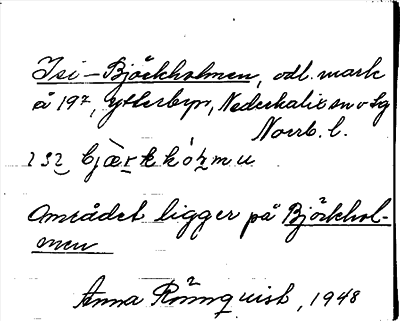 Isi-Björkholmen, odl. mark
å 19², Ytterbyn, Nederkalix sn o Sg
Norrb. l.
Området ligger på Björkhol-
men
Anna Rönnquist, 1948